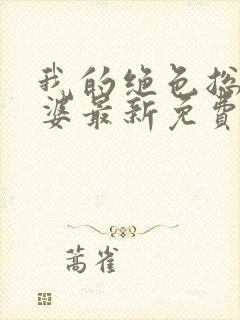 我的绝色总
婆最新免費
蒿雀